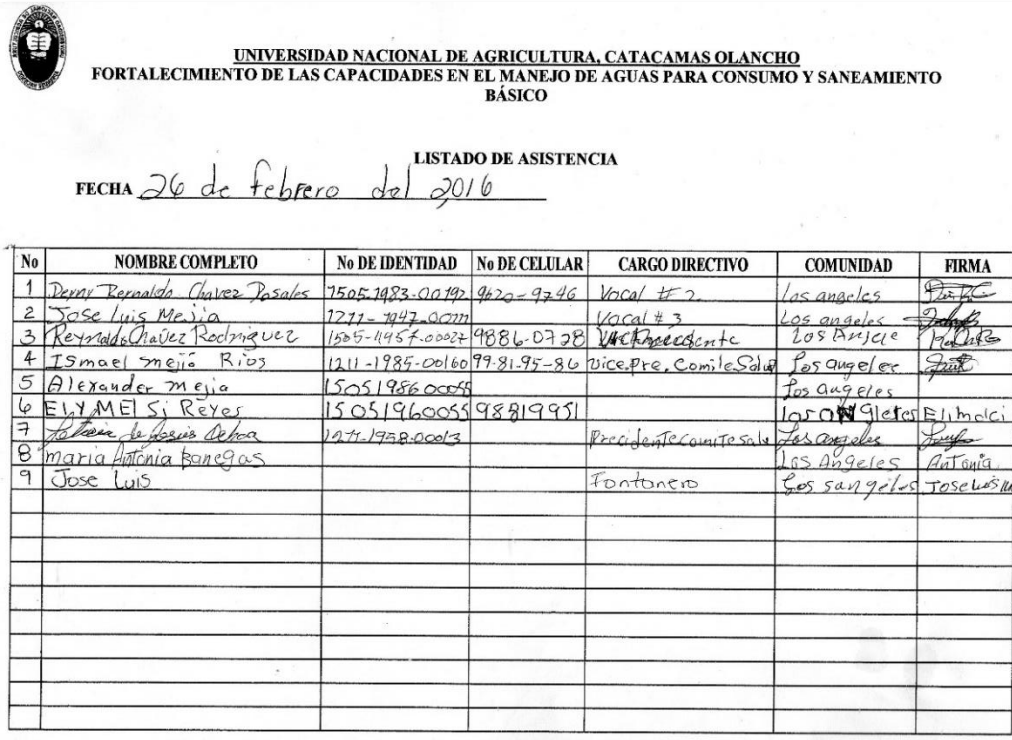 UNIVERSIDAD NACIONAL DE AGRICULTURA, CATACAMAS OLANCHO
FORTALECIMIENTO DE LAS CAPACIDADES EN EL MANEJO DE AGUAS PARA CONSUMO Y SANEAMIENTO
BÁSICO
LISTADO DE ASISTENCIA
FECHA 26 de febrero del 2016
No NOMBRE COMPLETO No DE IDENTIDAD No DE CELULAR CARGO DIRECTIVO COMUNIDAD FIRMA
1 Denny Bernaldo Chavez Rosales 1505-1983-00192 9620-9746 Vocal # 2 Los angeles
2 Jose Luis Mejia 1211-1947- Vocal # 3 Los angeles
3 Reynaldo Chavez Rodriguez 1505-1957-00027 9886-0728 Los
4 ISmael mejiá Rios 1211-1985-00160 99-81-95-86 vice.pre. Comite Salud Los angeles
5 Alexander mejia 1505198600055 Los angeles
6 ELY MEI Si Reyes 15051960055 98819951
7 de Jesus Ochoa 1211-1958-00013 Precidente comite salu Los angeles
8 maria Antonia Banegas Los Angeles Antonia
9 Jose Luis Fontonero Los san geles Jose Luis M